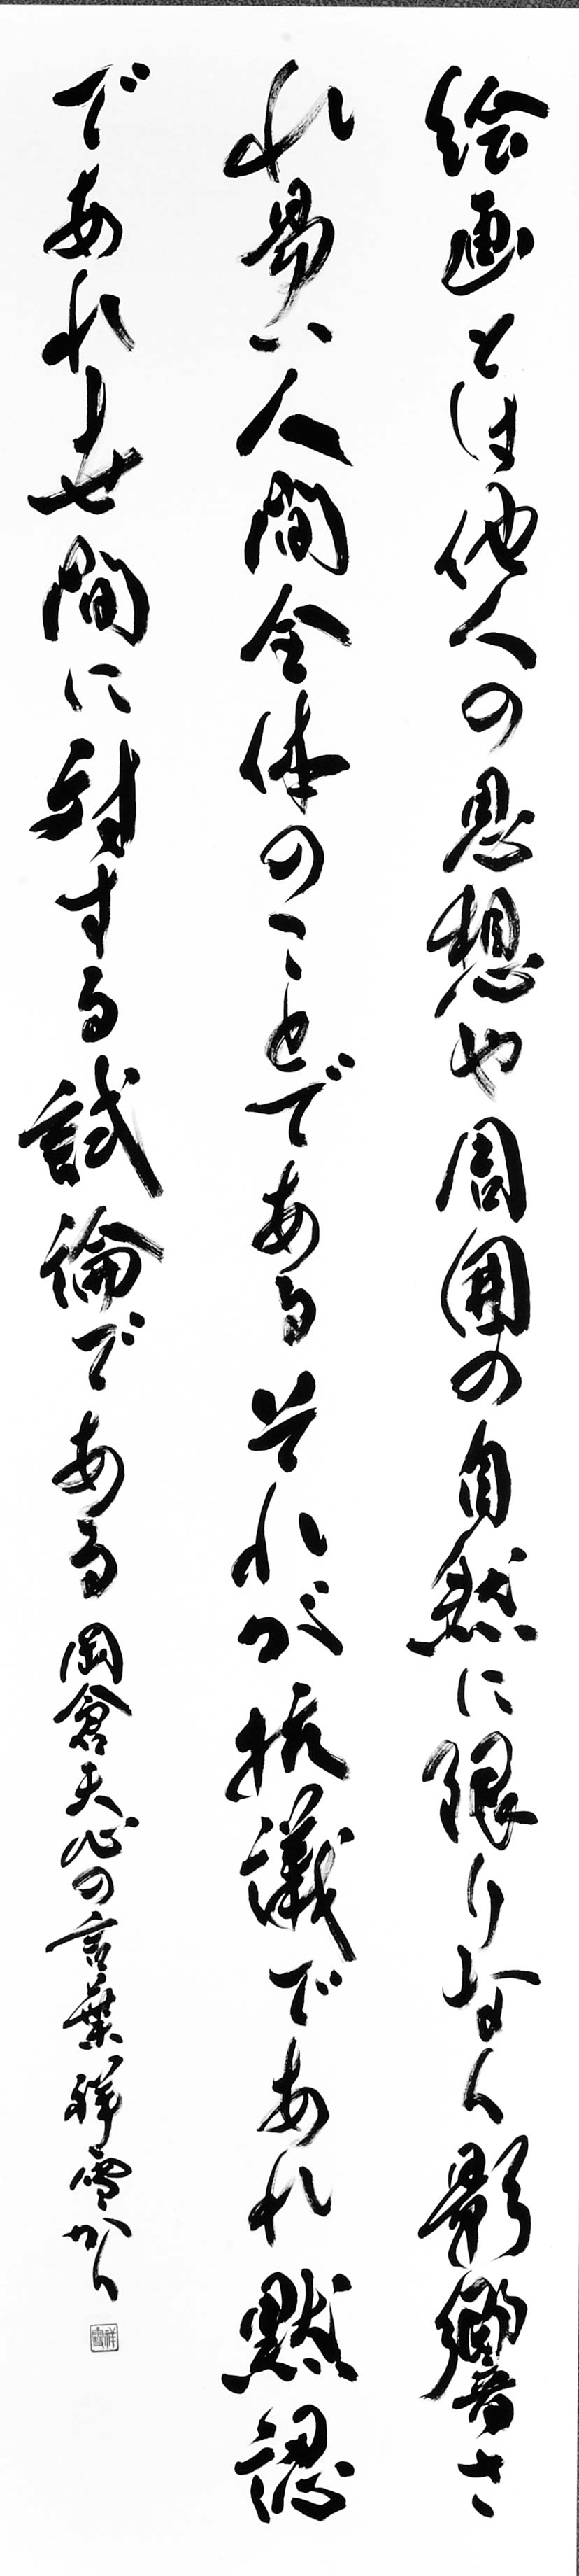 絵画とは他人の思想や周囲の自然に限りなく影響さ
れ易い人間全体のことであるそれが抗議であれ黙認
であれ世間に対する試論である 岡倉天心の言葉 祥雪かく
祥雪